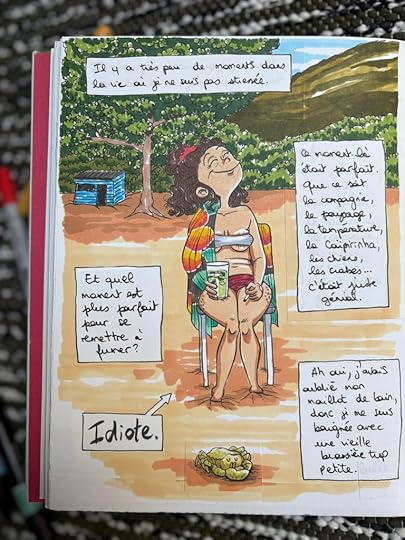 Il y a très peu de moments dans
la vie où je ne suis pas stressée.
Ce moment-là
était parfait.
Que ce soit
la compagnie,
le paysage,
la température,
la Caïpirinha,
les chiens,
les crabes...
c'était juste
génial.
Et quel
moment est
plus parfait
pour se
remettre à
fumer?
Idiote.
Ah oui, j'avais
oublié mon
maillot de bain,
donc je me suis
baignée avec
une vieille
brassière trop
petite.